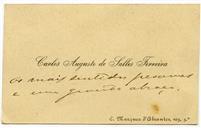 Carlos Augusto de Salles Ferreira
os mais sentidos pesames
e um grande abraço.
C. Marquez d'Abrantes, 109, 3.º